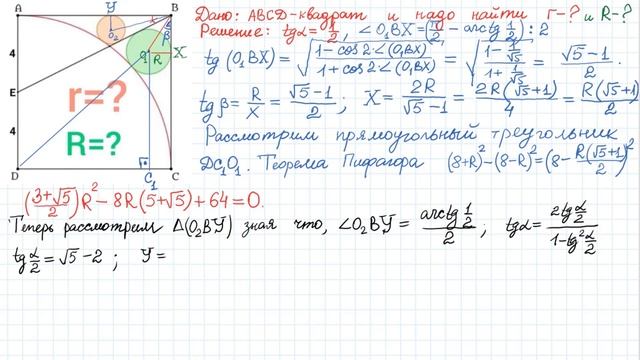 Дано: ABCD-квадрат и надо найти r-? и R-?
Решение: tgα = 1/2, ∠O₁BX = (π/2 - arctg 1/2) : 2
tg(O₁BX) = √((1-cos2∠(O₁BX))/(1+cos2∠(O₁BX))) = √((1-1/√5)/(1+1/√5)) = (√5-1)/2.
tgβ = R/X = (√5-1)/2; X = 2R/(√5-1) = 2R(√5+1)/4 = R(√5+1)/2
Рассмотрим прямоугольный треугольник
DC₁O₁. Теорема Пифагора (8+R)²-(8-R)²=(8-R(√5+1)/2)²
((3+√5)/2)R²-8R(5+√5)+64=0.
Теперь рассмотрим Δ(O₂BY) зная что, ∠O₂BY = (arctg 1/2)/2; tgα = (2tg α/2)/(1-tg² α/2)
tg α/2 = √5-2; Y=
Y
A
B
O₂
β
4
O₁
R
X
E
r=?
R=?
4
D
C₁
C